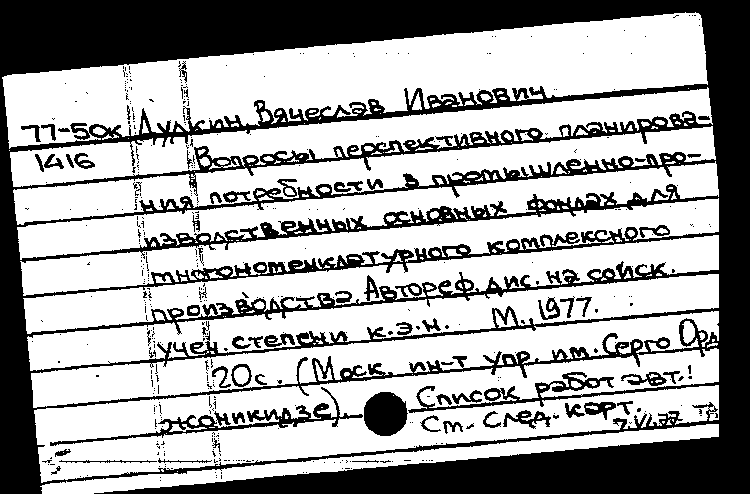 77-50к Дудкин, Вячеслав Иванович.
1416 Вопросы перспективного планирова-
ния потребности в промышленно-про-
изводственных основных фондах для
многономенклатурного комплексного
производства. Автореф. дис. на соиск.
учен. степени к.э.н. М., 1977.
20с. (Моск. ин-т упр. им. Серго Орд
жоникидзе). Список работ авт.!
См. след. карт.
7.VI.77